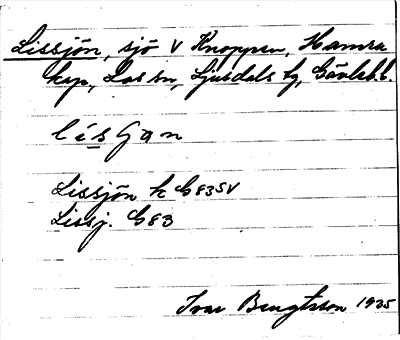 Lissjön, sjö V Knoppen, Hamra
kap, Los sn, Ljusdals tg, Gävleb. l.
lisʃan
Lissjön k G 83 SV
Lissj. G 83
Ivar Bengtsson 1925